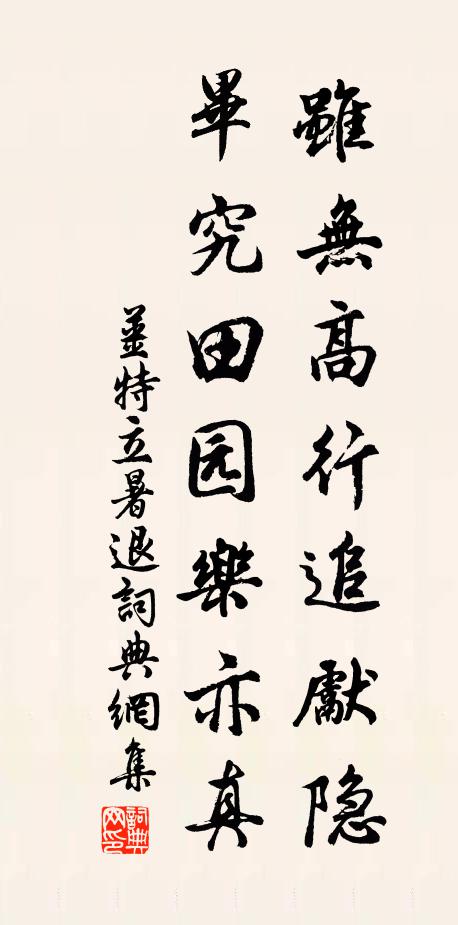 雖無高行追獻隐
畢究田园樂亦真
薑特立暑退詞典網集
詞典網印